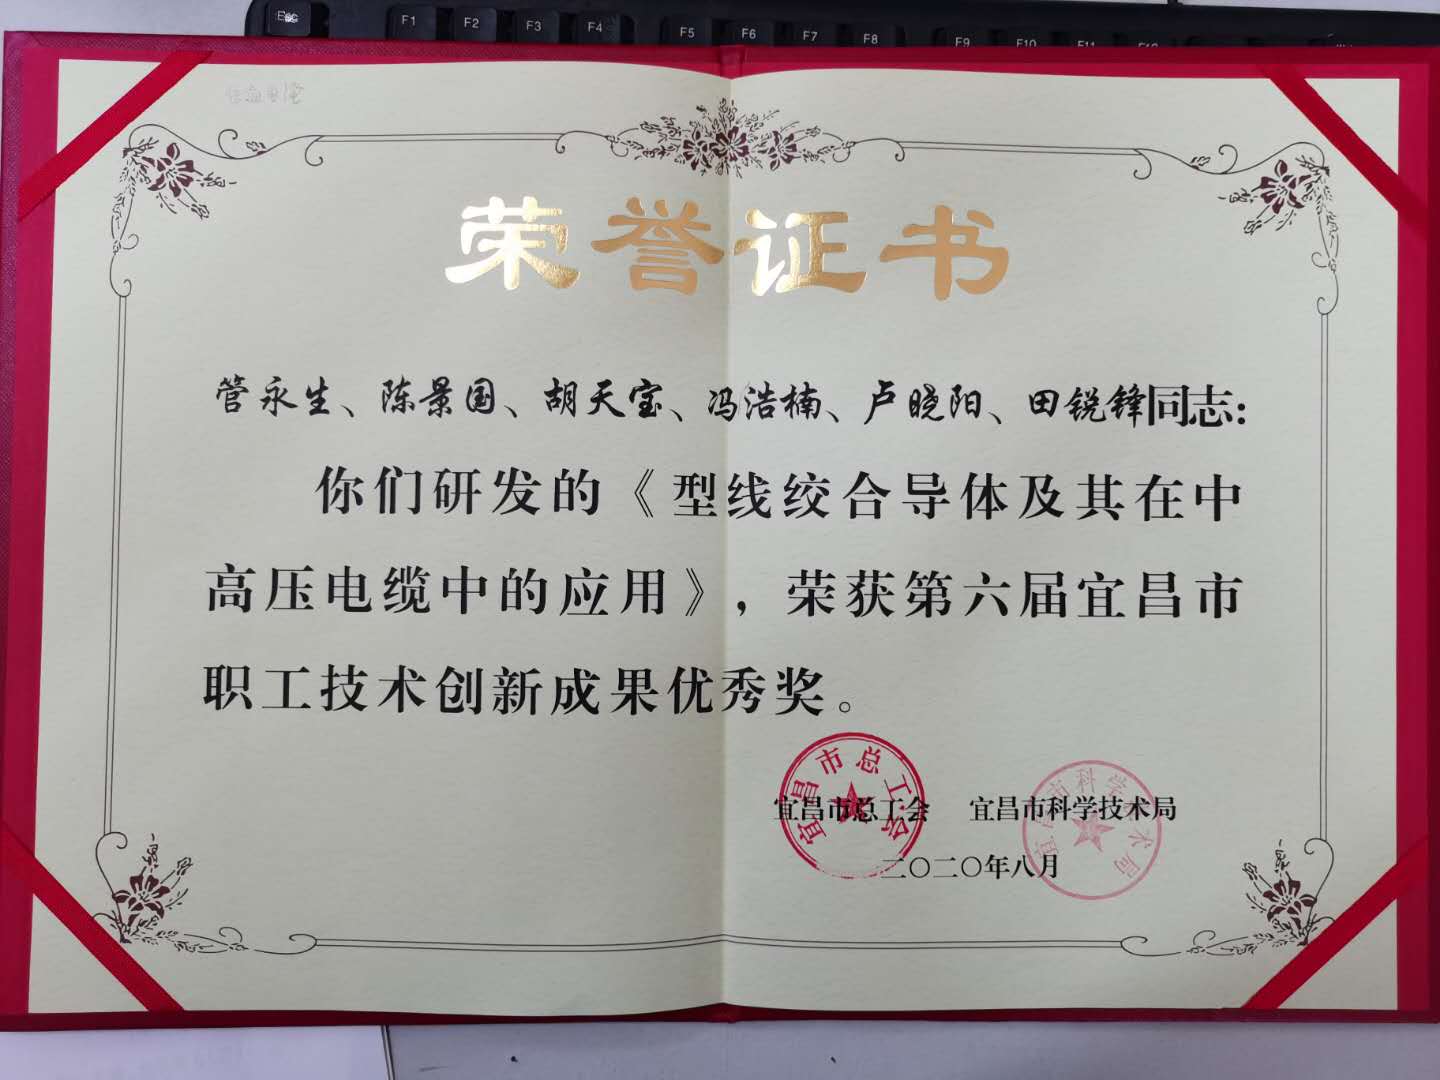 Esc F1 F2 F3 F4 F5 F6 F7 F8 F9 F10 F11
荣誉证书
管永生、陈景国、胡天宝、冯浩楠、卢晓阳、田锐锋同志：
你们研发的《型线绞合导体及其在中
高压电缆中的应用》，荣获第六届宜昌市
职工技术创新成果优秀奖。
宜昌市总工会 宜昌市科学技术局
二〇二〇年八月
宜昌市总工会
宜昌市科学技术局